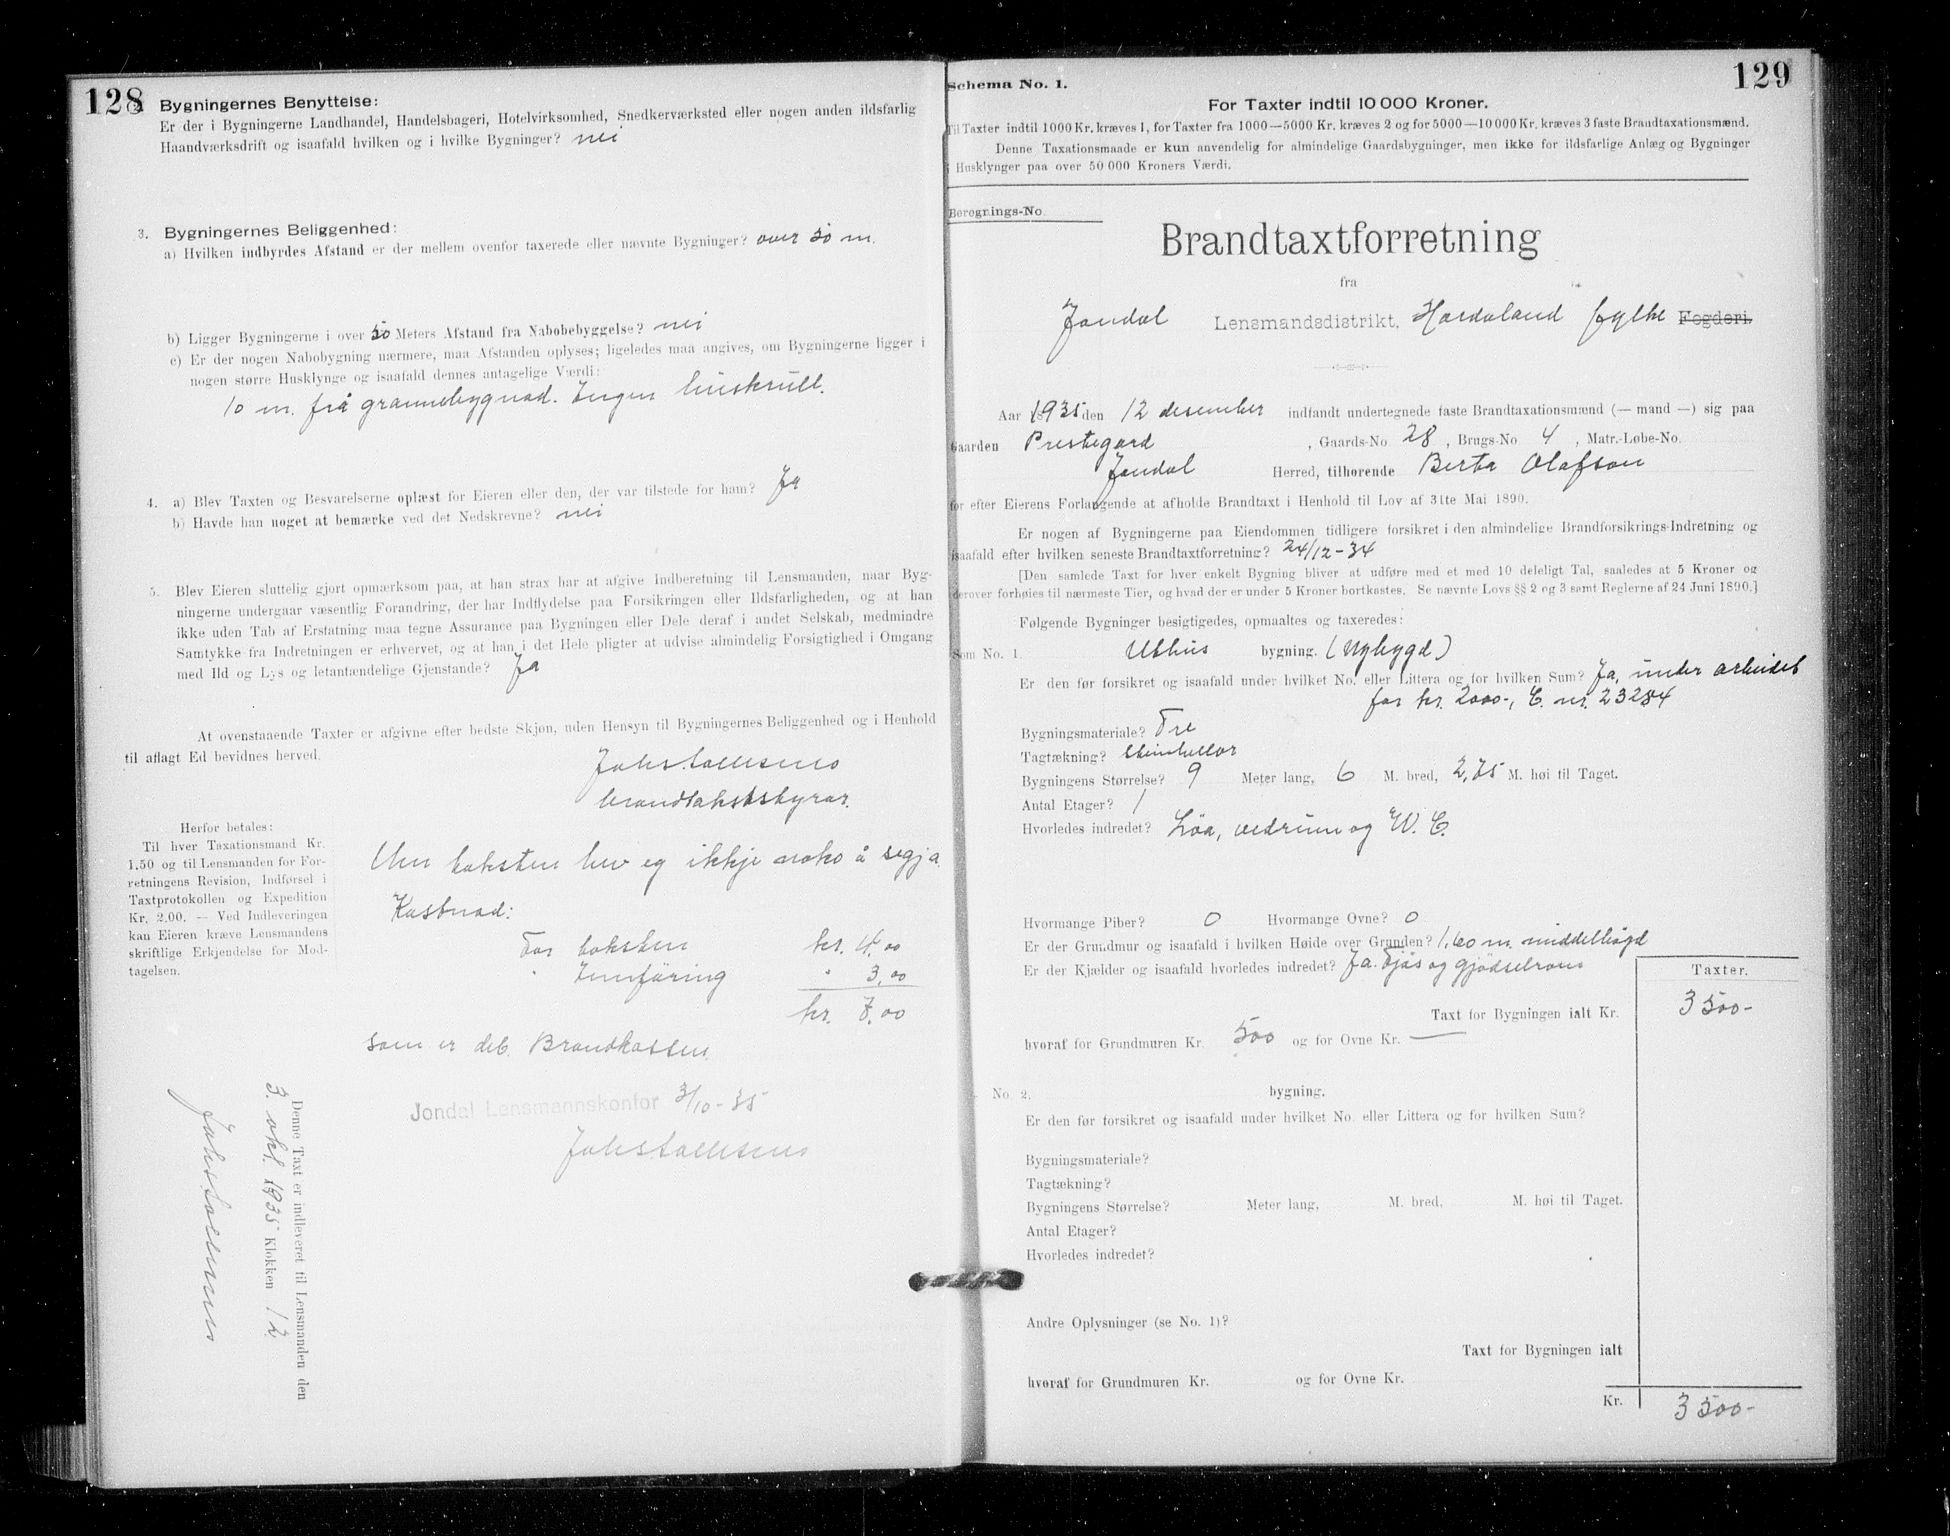 128
2. Bygningernes Benyttelse:
Er der i Bygningerne Landhandel, Handelsbageri, Hotelvirksomhed, Snedkerværksted eller nogen anden ildsfarlig
Haandværksdrift og isaafald hvilken og i hvilke Bygninger? nei
3. Bygningernes Beliggenhed:
a) Hvilken indbyrdes Afstand er der mellem ovenfor taxerede eller nævnte Bygninger? over 50 m.
b) Ligger Bygningerne i over 50 Meters Afstand fra Nabobebyggelse? nei
c) Er der nogen Nabobygning nærmere, maa Afstanden oplyses; ligeledes maa angives, om Bygningerne ligger i
nogen større Husklynge og isaafald dennes antagelige Værdi:
10 m. frå grannebygnad. Ingen huskrull.
4. a) Blev Taxten og Besvarelserne oplæst for Eieren eller den, der var tilstede for ham? Ja
b) Havde han noget at bemærke ved det Nedskrevne? nei
5. Blev Eieren sluttelig gjort opmærksom paa, at han strax har at afgive Indberetning til Lensmanden, naar Byg-
ningerne undergaar væsentlig Forandring, der har Indflydelse paa Forsikringen eller Ildsfarligheden, og at han
ikke uden Tab af Erstatning maa tegne Assurance paa Bygningen eller Dele deraf i andet Selskab, medmindre
Samtykke fra Indretningen er erhvervet, og at han i det Hele pligter at udvise almindelig Forsigtighed i Omgang
med Ild og Lys og letantændelige Gjenstande? Ja
At ovenstaaende Taxter er afgivne efter bedste Skjøn, uden Hensyn til Bygningernes Beliggenhed og i Henhold
til aflagt Ed bevidnes herved.
brandtakststyrar.
Herfor betales:
Til hver Taxationsmand Kr.
1.50 og til Lensmanden for For-
retningens Revision, Indførsel i
Taxtprotokollen og Expedition
Kr. 2.00. — Ved Indleveringen
kan Eieren kræve Lensmandens
skriftlige Erkjendelse for Mod-
tagelsen.
Um taksten hev eg ikkje noko å segja.
Kostnad:
For taksten kr. 4,00
" Innføring " 3,00
kr. 7,00
som er deb. Brandkassen.
Jondal Lensmannskontor 3/10-35
Denne Taxt er indleveret til Lensmanden den
3. okt. 1935 Klokken 12
129
Schema No. 1.
For Taxter indtil 10 000 Kroner.
Til Taxter indtil 1000 Kr. kræves 1, for Taxter fra 1000—5000 Kr. kræves 2 og for 5000—10 000 Kr. kræves 3 faste Brandtaxationsmænd.
Denne Taxationsmaade er kun anvendelig for almindelige Gaardsbygninger, men ikke for ildsfarlige Anlæg og Bygninger
i Husklynger paa over 50 000 Kroners Værdi.
Beregnings-No.
Brandtaxtforretning
fra
Jondal Lensmandsdistrikt, Hordaland fylke Fogderi.
Aar 1935 den 12 desember indfandt undertegnede faste Brandtaxationsmænd (— mand —) sig paa
Gaarden Prestegard, Gaards-No 28, Brugs-No 4, Matr.-Løbe-No.
Jondal Herred, tilhørende Berta Olafson
for efter Eierens Forlangende at afholde Brandtaxt i Henhold til Lov af 31te Mai 1890.
Er nogen af Bygningerne paa Eiendommen tidligere forsikret i den almindelige Brandforsikrings-Indretning og
isaafald efter hvilken seneste Brandtaxtforretning? 24/12-34
[Den samlede Taxt for hver enkelt Bygning bliver at udføre med et med 10 deleligt Tal, saaledes at 5 Kroner og
derover forhøies til nærmeste Tier, og hvad der er under 5 Kroner bortkastes. Se nævnte Lovs §§ 2 og 3 samt Reglerne af 24 Juni 1890.]
Følgende Bygninger besigtigedes, opmaaltes og taxeredes:
Som No. 1. Uthus bygning. (Nybygd)
Er den før forsikret og isaafald under hvilket No. eller Littera og for hvilken Sum? Ja, under arbeidet
for kr. 2000-, C. nr. 23284
Bygningsmateriale? Tre
Tagtækning? Steinhellor
Bygningens Størrelse? 9 Meter lang, 6 M. bred, 2,75 M. høi til Taget.
Antal Etager? 1
Hvorledes indredet? Løa, vedrum og W.C.
Hvormange Piber? 0 Hvormange Ovne? 0
Er der Grundmur og isaafald i hvilken Høide over Grunden? 1,60 m. middelhøgd
Er der Kjælder og isaafald hvorledes indredet? Ja. Fjøs og gjødselrom
Taxter.
Taxt for Bygningen ialt Kr. 3500-
hvoraf for Grundmuren Kr. 500 og for Ovne Kr. —
No. 2. bygning.
Er den før forsikret og isaafald under hvilket No. eller Littera og for hvilken Sum?
Bygningsmateriale?
Tagtækning?
Bygningens Størrelse? Meter lang, M. bred, M. høi til Taget.
Antal Etager?
Hvorledes indredet?
Andre Oplysninger (se No. 1)?
Taxt for Bygningen ialt
hvoraf for Grundmuren Kr. og for Ovne Kr.
Kr. 3500-